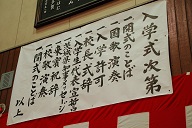 入学式次第
一開式のことば
一国歌演奏
一入学許可
一校長式辞
一入学生代表宣誓
一来賓祝辞
一校歌演奏
一閉式のことば
以上